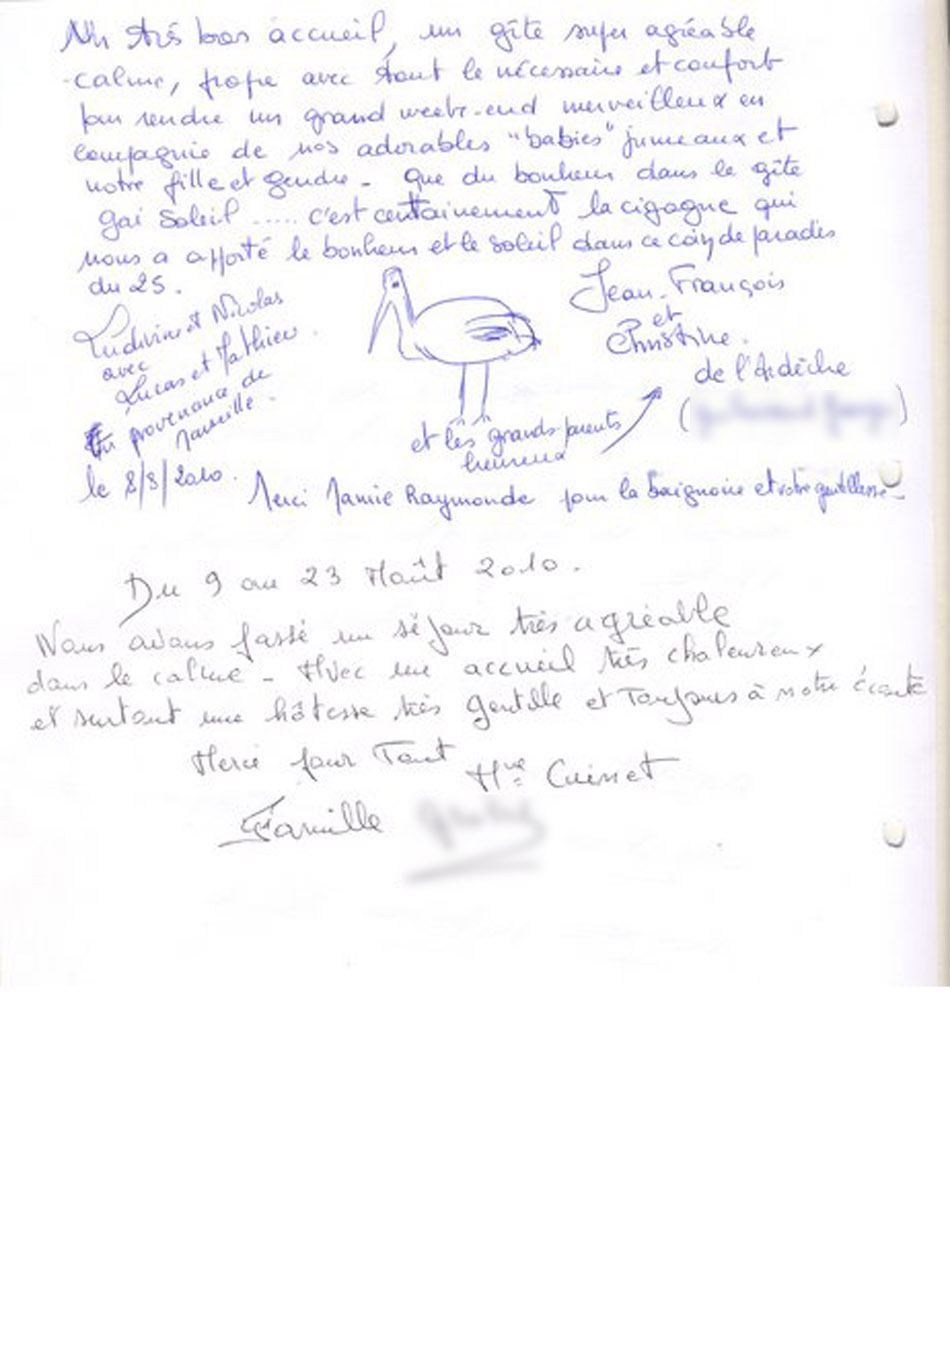 Un très bon accueil, un gîte super agréable
calme, propre avec tout le nécessaire et confort
pour rendre un grand week-end merveilleux en
compagnie de nos adorables "babies" jumeaux et
notre fille et gendre - Que du bonheur dans le gîte
Gai Soleil ..... c'est certainement la cigogne qui
nous a apporté le bonheur et le soleil dans ce coin de paradis
du 25.
Ludivine et Nicolas
avec
Lucas et Mathieu.
En provenance de
le 8/8/2010.
Jean-François
et
Christine.
de l'Ardèche
et les grands-parents
heureux
Merci Mamie Raymonde pour la baignoire et votre gentillesse -
Du 9 au 23 Août 2010.
Nous avons passé un séjour très agréable
dans le calme - Avec une accueil très chaleureux
et surtout une hôtesse très gentille et toujours à notre écoute
Merci pour Tout Mme Cuinet
Famille